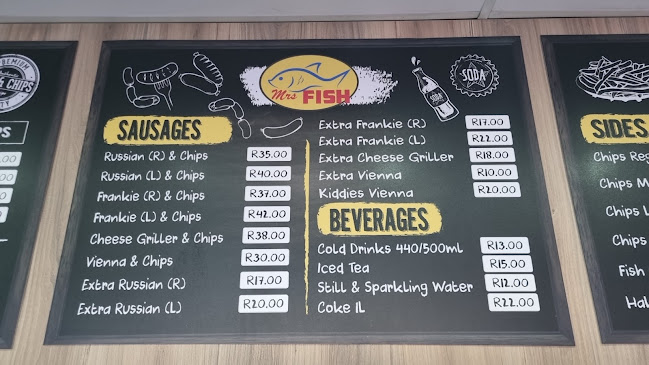 PREMIUM
CHIPS
.00
.00
Mrs FISH
SODA
SAUSAGES
Russian (R) & Chips R35.00
Russian (L) & Chips R40.00
Frankie (R) & Chips R37.00
Frankie (L) & Chips R42.00
Cheese Griller & Chips R38.00
Vienna & Chips R30.00
Extra Russian (R) R17.00
Extra Russian (L) R20.00
Extra Frankie (R) R17.00
Extra Frankie (L) R22.00
Extra Cheese Griller R18.00
Extra Vienna R10.00
Kiddies Vienna R20.00
BEVERAGES
Cold Drinks 440/500ml R13.00
Iced Tea R15.00
Still & Sparkling Water R12.00
Coke 1L R22.00
SIDES
Chips Reg
Chips M
Chips L
Chips
Fish
Hal